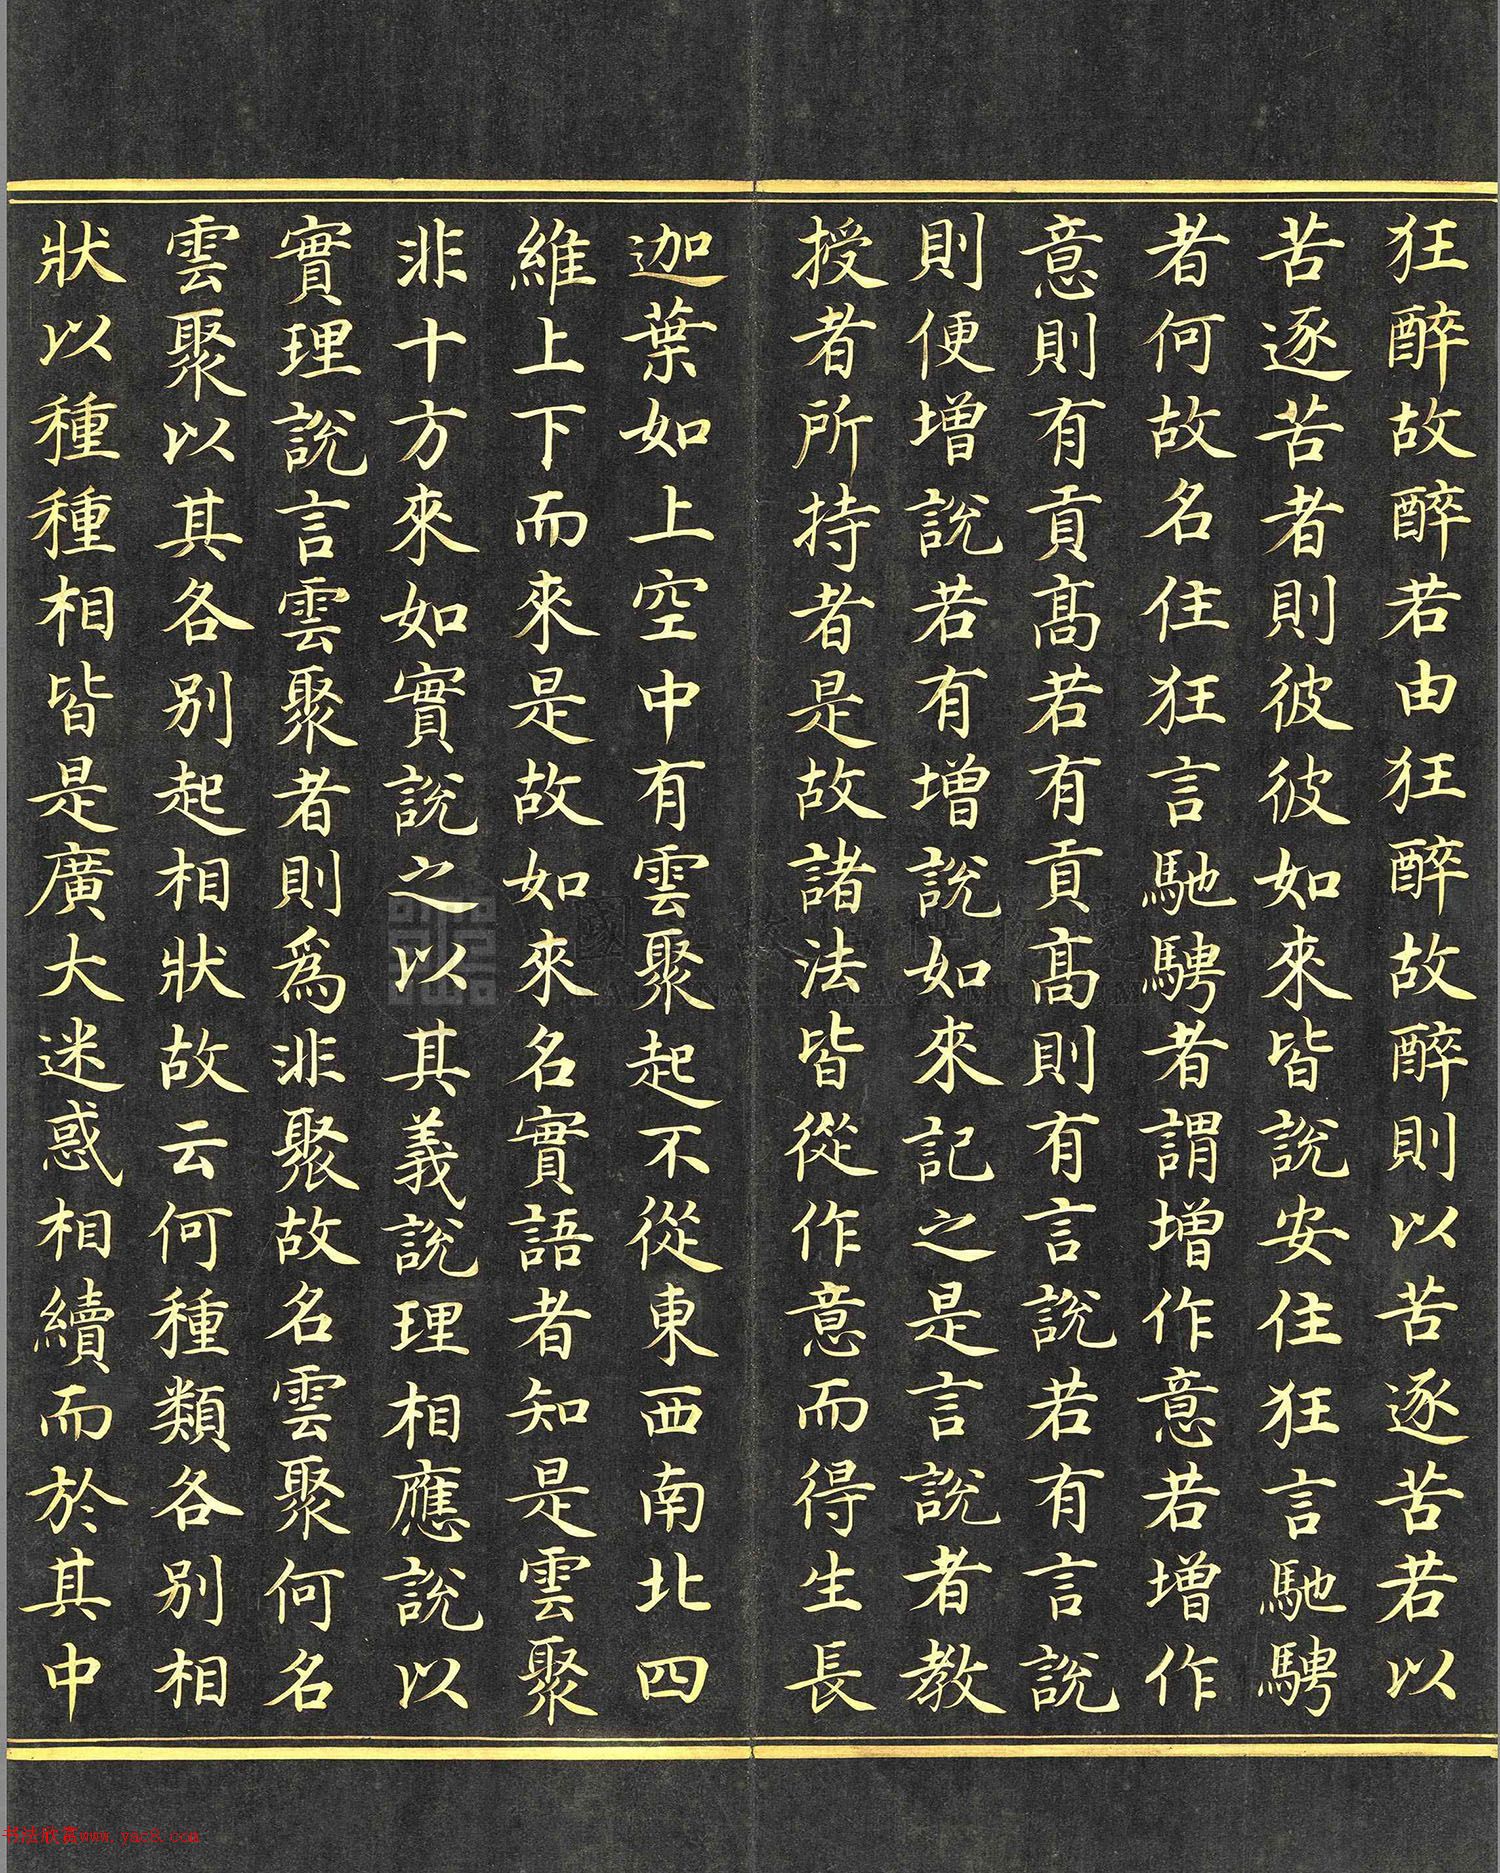 狂醉故醉若由狂醉故醉則以苦逐苦若以
苦逐苦者則彼彼如來皆說安住狂言馳騁
者何故名住狂言馳騁者謂增作意若增作
意則有貢高若有貢高則有言說若有言說
則便增說若有增說如來記之是言說者教
授者所持者是故諸法皆從作意而得生長
迦葉如上空中有雲聚起不從東西南北四
維上下而來是故如來名實語者知是雲聚
非十方來如實說之以其義說理相應說以
實理說言雲聚者則爲非聚故名雲聚何名
雲聚以其各別起相狀故云何種類各別相
狀以種種相皆是廣大迷惑相續而於其中
书法欣赏www.yac8.com